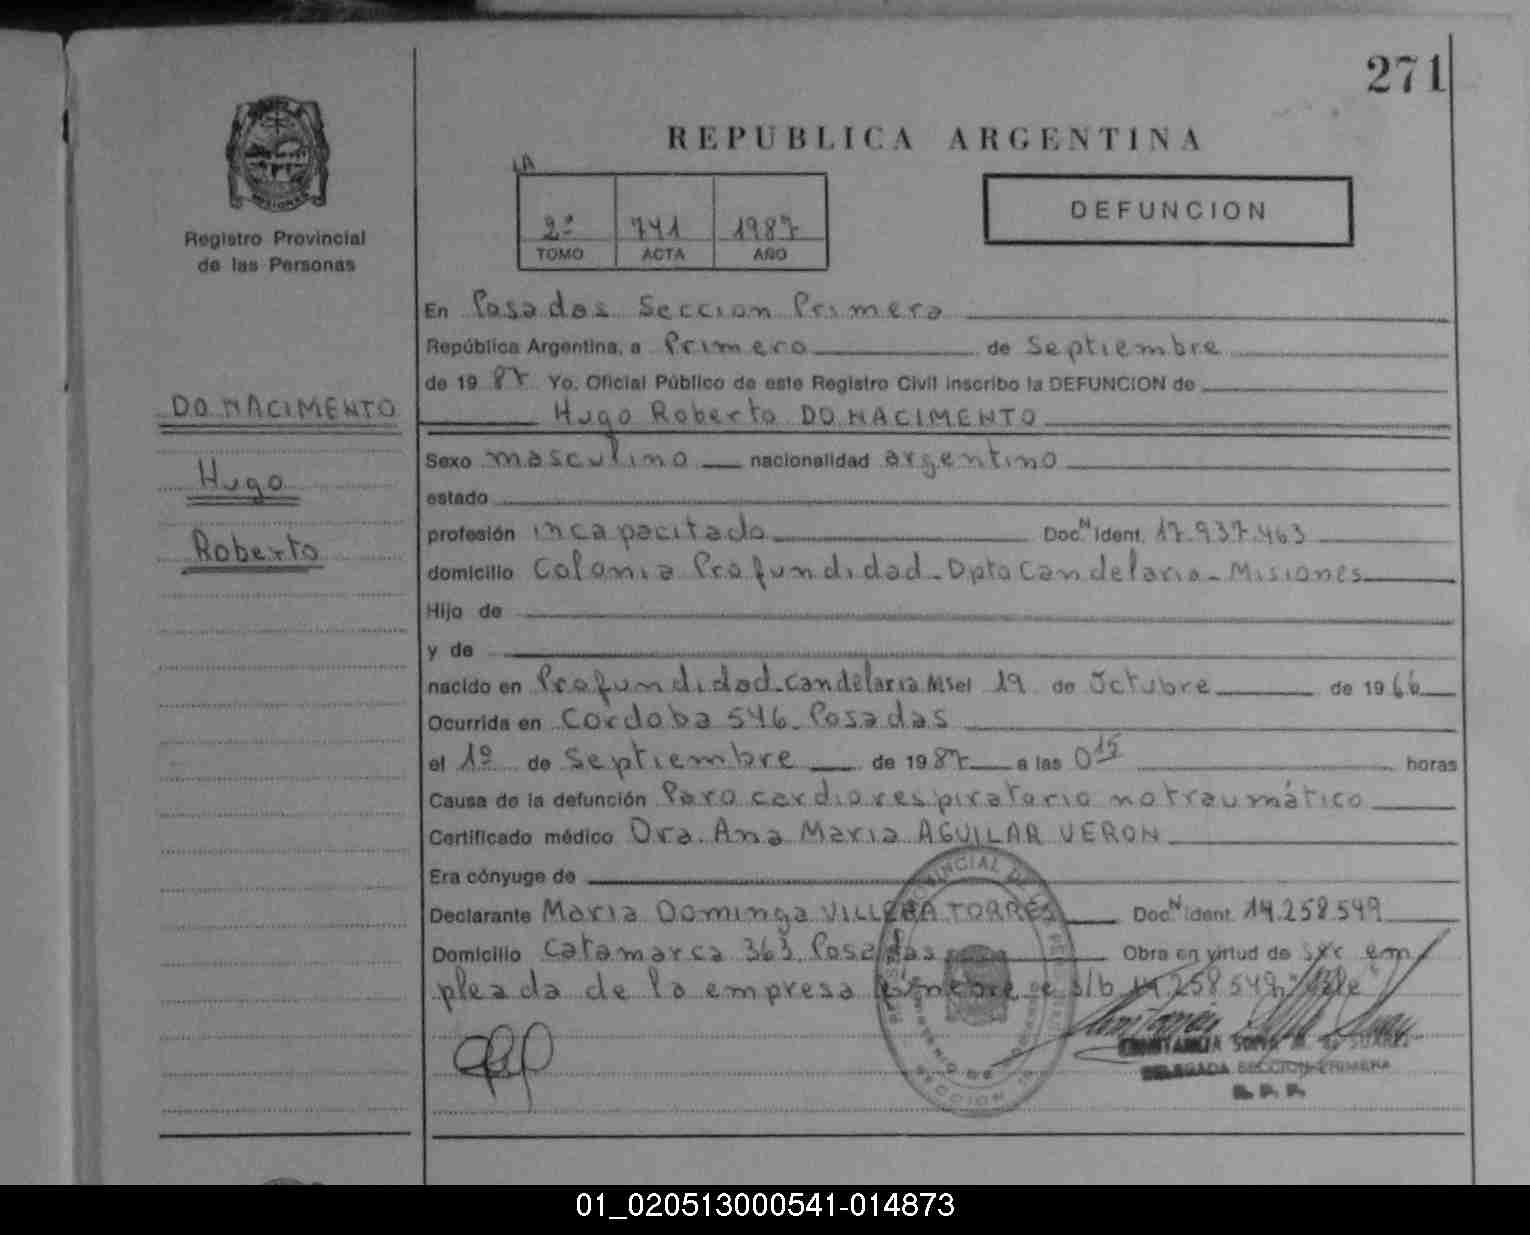 271
REPUBLICA ARGENTINA
DEFUNCION
1A
2º 741 1987
TOMO ACTA AÑO
MISIONES
Registro Provincial
de las Personas
DO NACIMENTO
Hugo
Roberto
En Posadas Seccion Primera
República Argentina, a Primero de Septiembre
de 1987 Yo, Oficial Público de este Registro Civil inscribo la DEFUNCION de
Hugo Roberto DO NACIMENTO
Sexo masculino nacionalidad argentino
estado
profesión incapacitado Doc N Ident. 17.937.463
domicilio Colonia Profundidad - Dpto Candelaria - Misiones
Hijo de
y de
nacido en Profundidad - Candelaria Ms el 19 de Octubre de 1966
Ocurrida en Cordoba 546 - Posadas
el 1º de Septiembre de 1987 a las 0 15 horas
Causa de la defunción Paro cardiorespiratorio no traumático
Certificado médico Dra. Ana Maria AGUILAR VERON
Era cónyuge de
Declarante Maria Dominga VILLEBA TORRES Doc N Ident. 14.258.549
Domicilio Catamarca 363, Posadas Obra en virtud de ser em
pleada de la empresa funebre e s/b 14.258.549 "Vale"
DELEGADA SECCION PRIMERA
R. P. P.
01_020513000541-014873